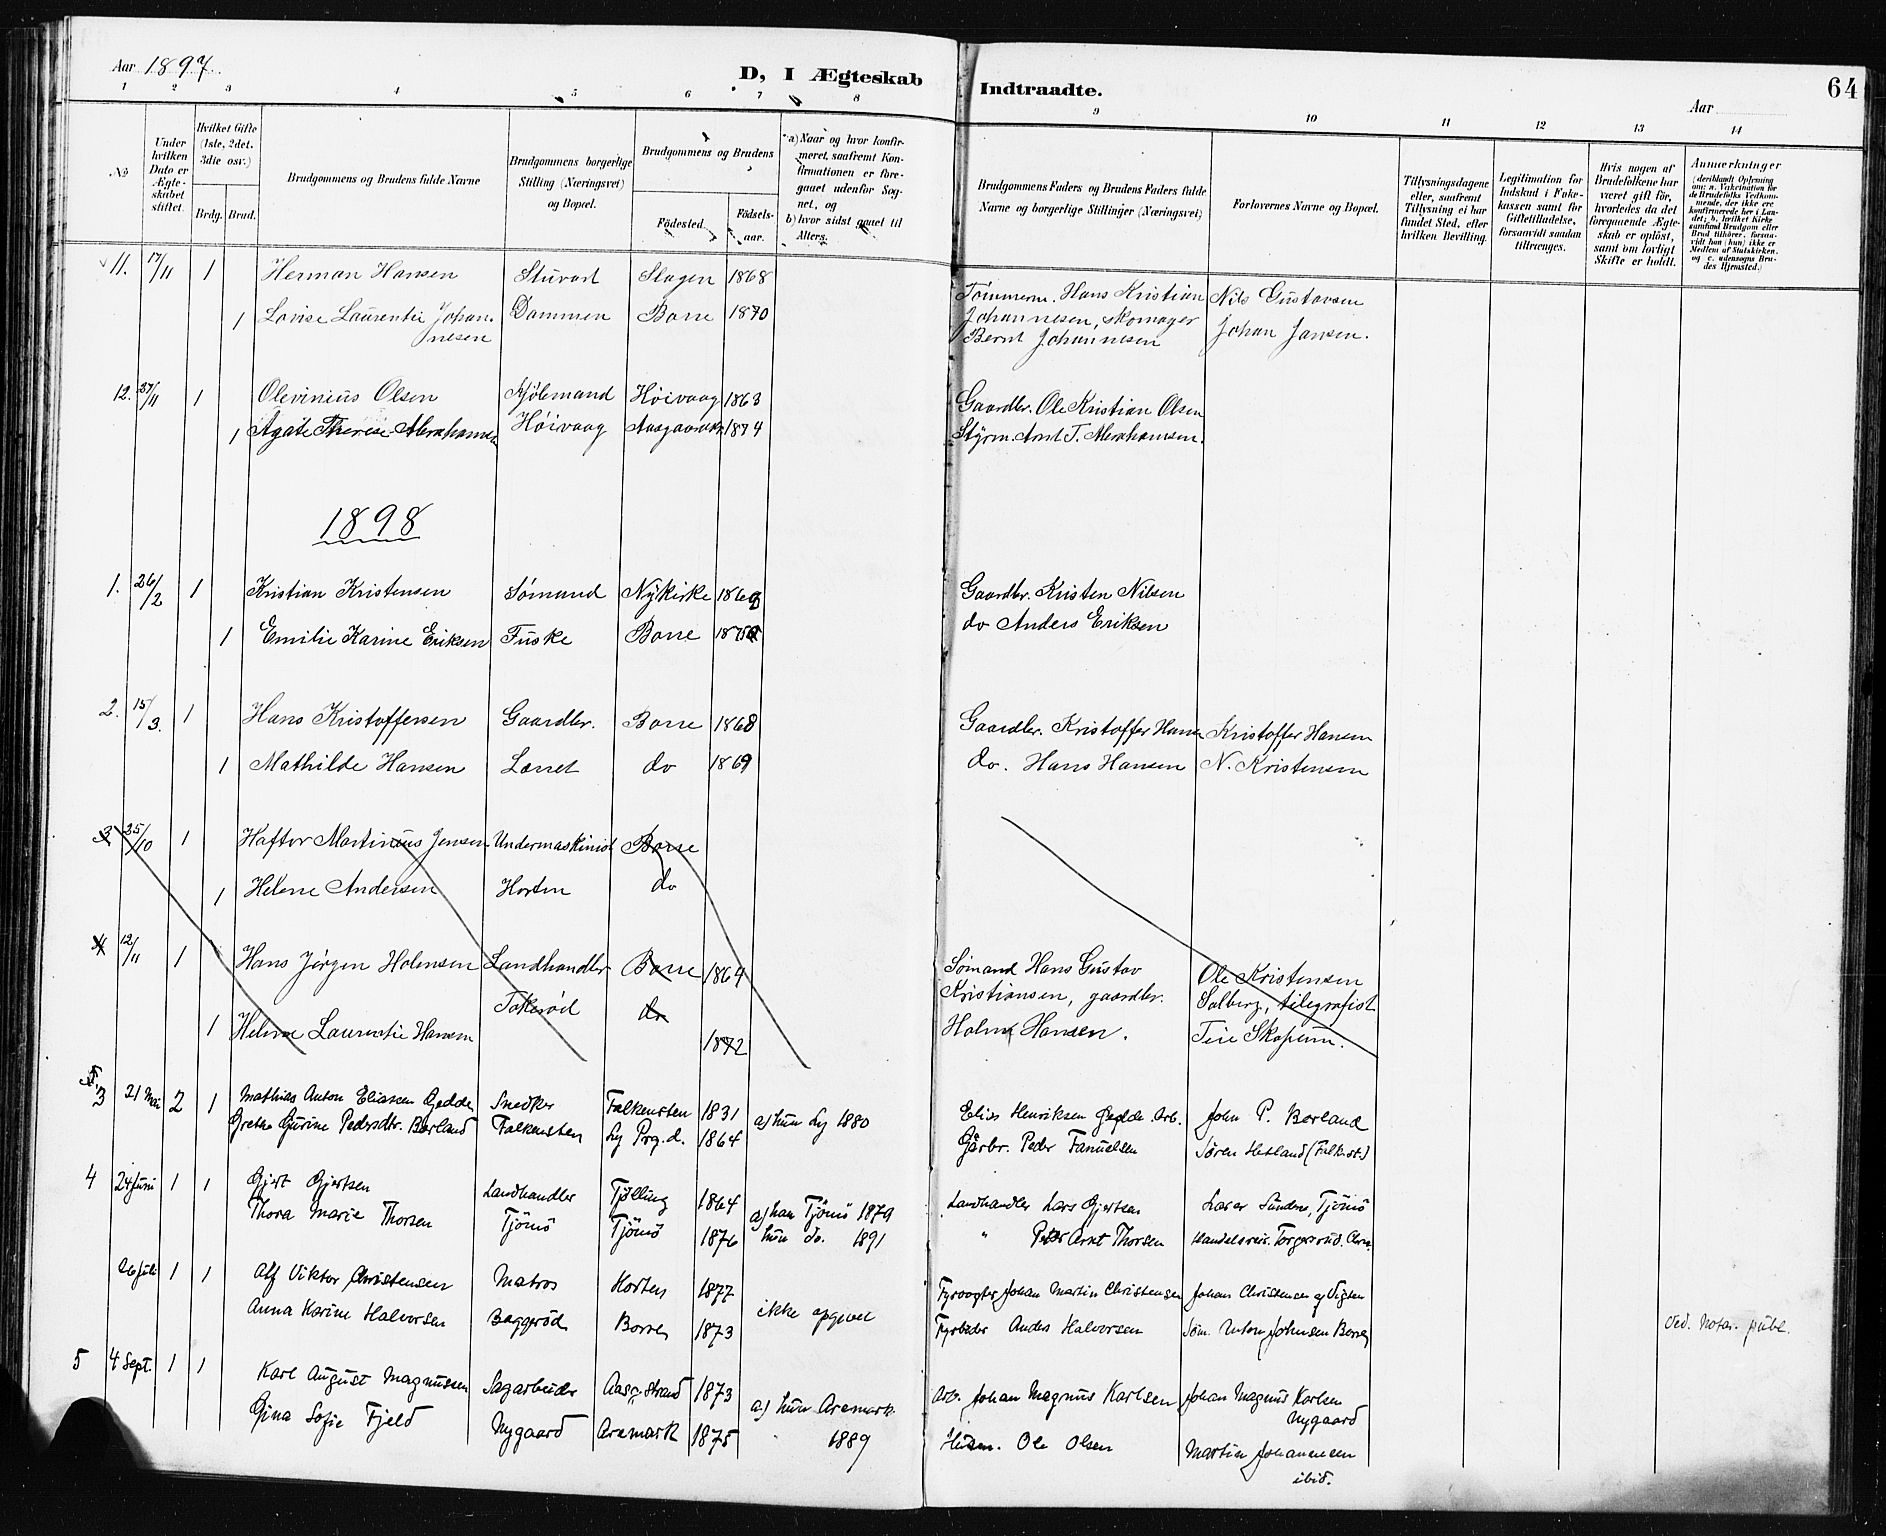 Aar 1897.
D, I Ægteskab Indtraadte.
Aar
64
1 2 3 4 5 6 7 8 9 10 11 12 13 14
No
Under hvilken Dato er Ægteskabet stiftet.
Hvilket Gifte (1ste, 2det, 3die osv.)
Brdg. Brud.
Brudgommens og Brudens fulde Navne
Brudgommens borgerlige Stilling (Næringsvei) og Bopæl.
Brudgommens og Brudens
Fødested.
Fødselsaar.
a) Naar og hvor konfirmeret, saafremt Konfirmationen er foregaaet udenfor Sognet, og
b) hvor sidst gaaet til Alters.
Brudgommens Faders og Brudens Faders fulde Navne og borgerlige Stillinger (Næringsvei)
Forlovernes Navne og Bopæl.
Tillysningsdagene eller, saafremt Tillysning ei har fundet Sted, efter hvilken Bevilling.
Legitimation for Indskud i Enkekassen samt for Giftetilladelse, forsaavidt saadan tiltrænges.
Hvis nogen af Brudefolkene har været gift før, hvorledes da det foregaaende Ægteskab er opløst, samt om lovligt Skifte er holdt.
Anmærkninger
11. 17/11 1 Herman Hansen Stuvart Slagen 1868 Tømmerm. Hans Kristian Nils Gustavsen
1 Lovise Laurentie Johan- Dammen Borre 1870 Johannesen, skomager Johan Jansen.
nesen Bernt Johannesen
12. 27/11 1 Olevinius Olsen Sjølemand Høivaag 1863 Gaardbr. Ole Kristian Olsen
1 Agate Therese Abrahamsen Høivaag 1874 Styrm. Arnt T. Abrahamsen.
1898
1. 26/2 1 Kristian Kristensen Sømand Nykirke Gaardbr. Kristen Nilsen
1 Emilie Karine Eriksen Fuske Borre do Anders Eriksen
2. 15/3. 1 Hans Kristoffersen Gaardbr. Borre 1868 Gaardbr. Kristoffer Hansen Kristoffer Hansen
1 Mathilde Hansen Lørret do 1869 do. Hans Hansen N. Kristensen
3 25/10 1 Haftor Martinius Jensen Undermaskinist Borre
1 Helene Andersen Horten do
4 12/11 1 Hans Jørgen Holmsen Landhandler Borre 1864 Sømand Hans Gustav Ole Kristensen
Takerød do Kristiansen, gaardbr. Solberg, telegrafist
1 Helene Laurentie Hansen 1872 Holm Hansen. Skopum.
3 21 Mai 2 1 Mathias Anton Eliasen Gedde Snedker Falkensten 1831 a) hun Ly 1880 Elias Henriksen Gedde Arb. John P. Børland
Grethe Gurine Pedersdtr. Børland Falkensten Ly Prg.d. 1864 Gårbr. Peder Fanuelsen Søren Hetland (Falk.st.)
4 24 Juni 1 1 Gjert Gjertsen Landhandler Tjølling 1864 a) han Tjömö 1879 Landhandler Lars Gjertsen Sundene, Tjömö
Thora Marie Thorsen Tjömö Tjömö 1876 hun do. 1891 " Peter Arnt Thorsen Handelsreis.
26 Juli 1 1 Alf Viktor Christensen Matros Horten 1877 ikke opgivet Fyrvogter Johan Martin Christensen Johan Christensen
Anna Karine Halvorsen Baggerød Borre 1873 Fyrbøder Anders Halvorsen Søm. Anton Johnsen Borre Ved. Notar. publ.
5 4 Sept. 1 1 Karl August Magnussen Sagarbeider Aasg.strand 1873 a) hun Aremark Arb. Johan Magnus Karlsen Johan Magnus Karlsen
Nygaard
Gina Sofie Fjeld Nygaard Aremark 1875 1889 Husm. Ole Olsen Martin Johannesen
ibid.